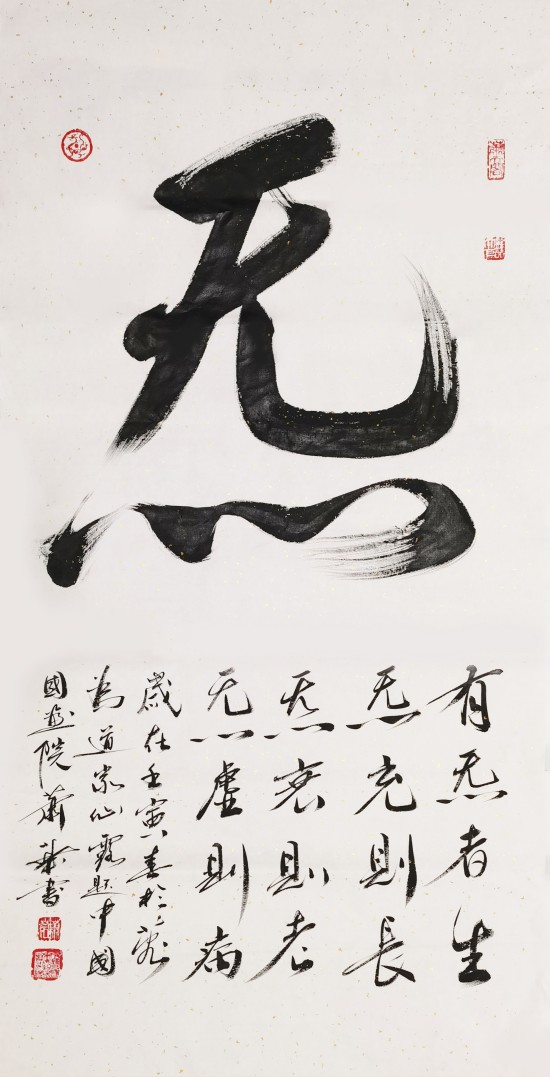 炁
有炁者生
炁充則長
炁衰則老
炁虛則病
歲在壬寅春於
為道家仙題中國
國院蕭書